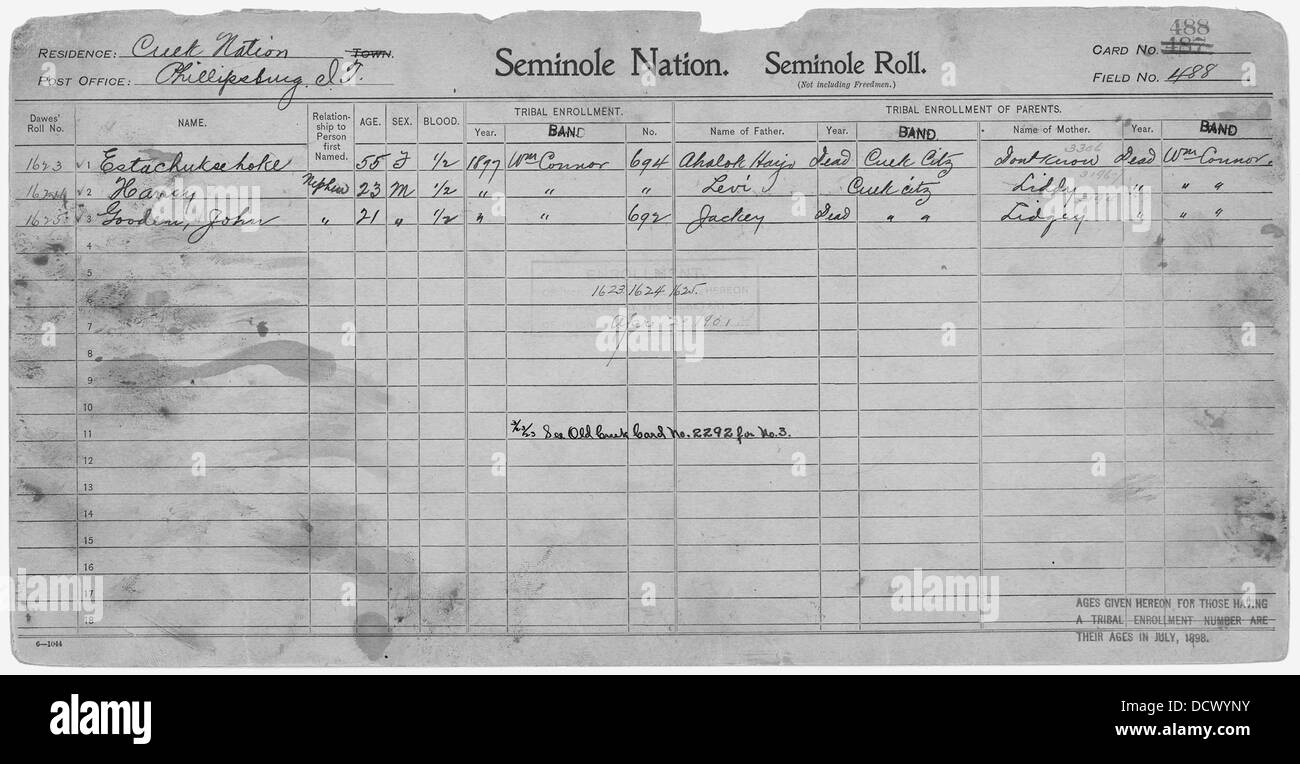 488
RESIDENCE: Creek Nation TOWN. Seminole Nation. Seminole Roll. CARD NO. 487
POST OFFICE: Phillipsburg, I.T. (Not including Freedmen.) FIELD NO. 488
Dawes' Roll No. NAME. Relationship to Person first Named. AGE. SEX. BLOOD. TRIBAL ENROLLMENT. TRIBAL ENROLLMENT OF PARENTS.
Year. BAND No. Name of Father. Year. BAND Name of Mother. Year. BAND
3306
1623 1 Estachukse hoke 55 F 1/2 1897 Wm Connor 694 Ahalok Hajo Dead Creek Citz Dont Know Dead Wm Connor.
1624 2 Haney Nephew 23 M 1/2 " " " Levi Creek citz " " "
1625 3 Gooden, John " 21 " 1/2 " " 692 Jackey Dead " " Lidgey " " "
4
5
ENROLLMENT
6 1623. 1624 1625. HEREON
7 1901.
8
9
10
11 See Old Creek Card No. 2292 for No. 3.
12
13
14
15
16
17 AGES GIVEN HEREON FOR THOSE HAVING
18 A TRIBAL ENROLLMENT NUMBER ARE
6—1044 THEIR AGES IN JULY, 1898.
alamy
alamy
alamy
alamy
alamy
a
a
a
a
a
a
a
alamy
Image ID: DCWYNY
www.alamy.com